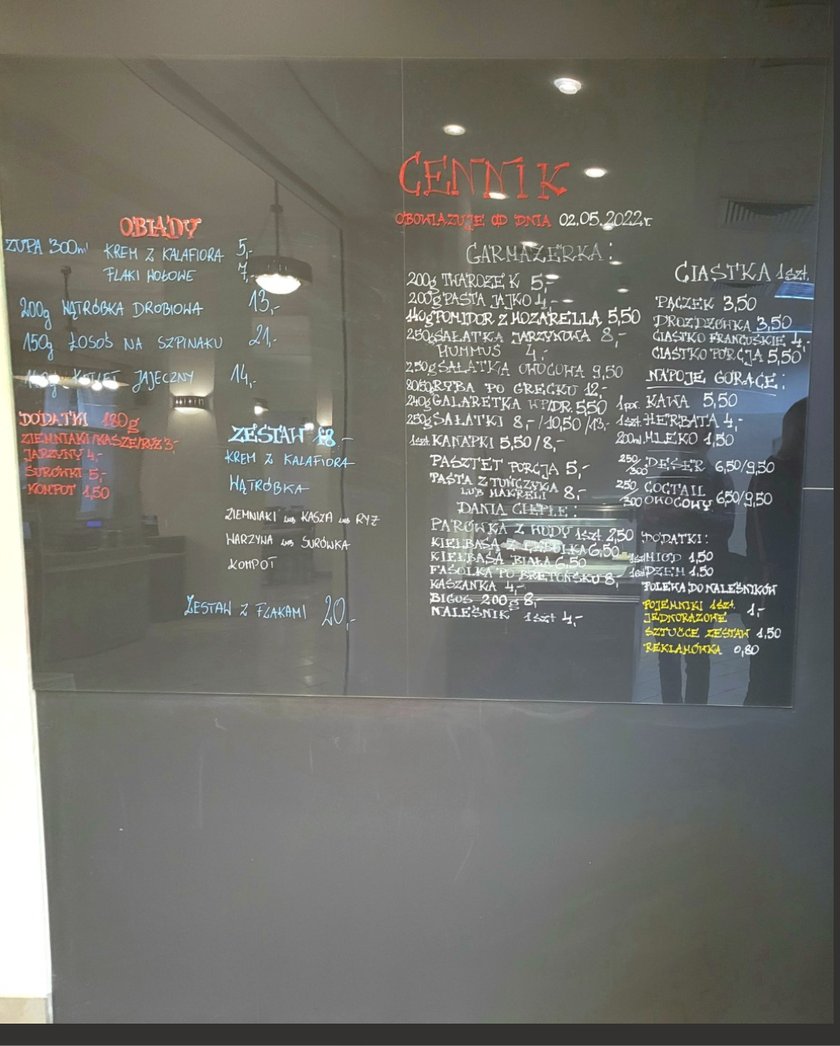 CENNIK
OBOWIĄZUJE OD DNIA 02.05.2022r.
OBIADY
ZUPA 300ml KREM Z KALAFIORA 5,-
FLAKI WOŁOWE 7,-
200g WĄTRÓBKA DROBIOWA 13,-
150g ŁOSOŚ NA SZPINAKU 21,-
KOTLET JAJECZNY 14,-
DODATKI 180g
ZIEMNIAKI/KASZE/RYŻ 3,-
JARZYNY 4,-
SURÓWKI 5,-
KOMPOT 1,50
ZESTAW 18,-
KREM Z KALAFIORA
WĄTRÓBKA
ZIEMNIAKI LUB KASZA LUB RYŻ
WARZYWA LUB SURÓWKA
KOMPOT
ZESTAW Z FLAKAMI 20,-
GARMAŻERKA:
200g TWAROŻEK 5,-
200g PASTA JAJKO 4,-
140g POMIDOR Z MOZARELLĄ 5,50
250g SAŁATKA JARZYNOWA 8,-
HUMMUS 4,-
250g SAŁATKA OWOCOWA 9,50
RYBA PO GRECKU 12,-
240g GALARETKA W/DR. 5,50
250g SAŁATKI 8,-/10,50/13,-
1szt KANAPKI 5,50/8,-
PASZTET PORCJA 5,-
PASTA Z TUŃCZYKA
LUB MAKRELI 8,-
DANIA CIEPŁE:
PARÓWKA Z WODY 1szt 2,50
KIEŁBASA Z 6,50
KIEŁBASA BIAŁA 6,50
FASOLKA PO BRETOŃSKU 8,-
KASZANKA 4,-
BIGOS 200g 8,-
NALEŚNIK 1szt 4,-
CIASTKA 1szt.
PĄCZEK 3,50
DROŻDŻÓWKA 3,50
CIASTKO FRANCUSKIE 4,-
CIASTKO PORCJA 5,50
NAPOJE GORĄCE:
1por. KAWA 5,50
1szt. HERBATA 4,-
200ml MLEKO 1,50
250/300 DESER 6,50/9,50
250/300 COCTAIL OWOCOWY 6,50/9,50
DODATKI:
MIÓD 1,50
DŻEM 1,50
POLEWA DO NALEŚNIKÓW
POJEMNIKI 1szt. 1,-
JEDNORAZOWE
SZTUĆCE ZESTAW 1,50
REKLAMÓWKA 0,80